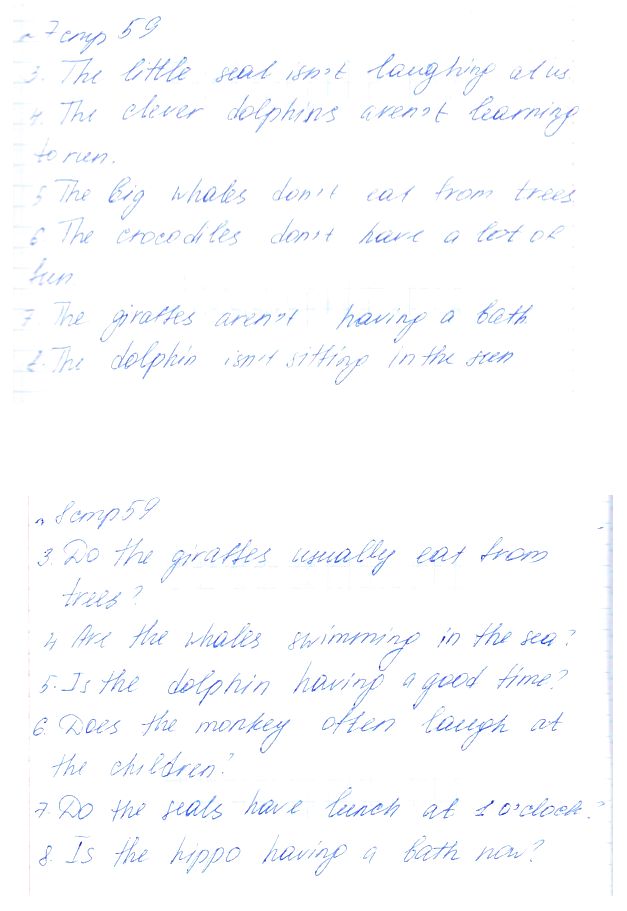 7 стр 59
3. The little seal isn't laughing at us
4. The clever dolphins aren't learning
to run.
5 The big whales don't eat from trees
6 The crocodiles don't have a lot of
fun
7. The giraffes aren't having a bath
8. The dolphin isn't sitting in the sun
8 стр 59
3. Do the giraffes usually eat from
trees?
4 Are the whales swimming in the sea?
5. Is the dolphin having a good time?
6. Does the monkey often laugh at
the children?
7. Do the seals have lunch at 1 o'clock?
8. Is the hippo having a bath now?